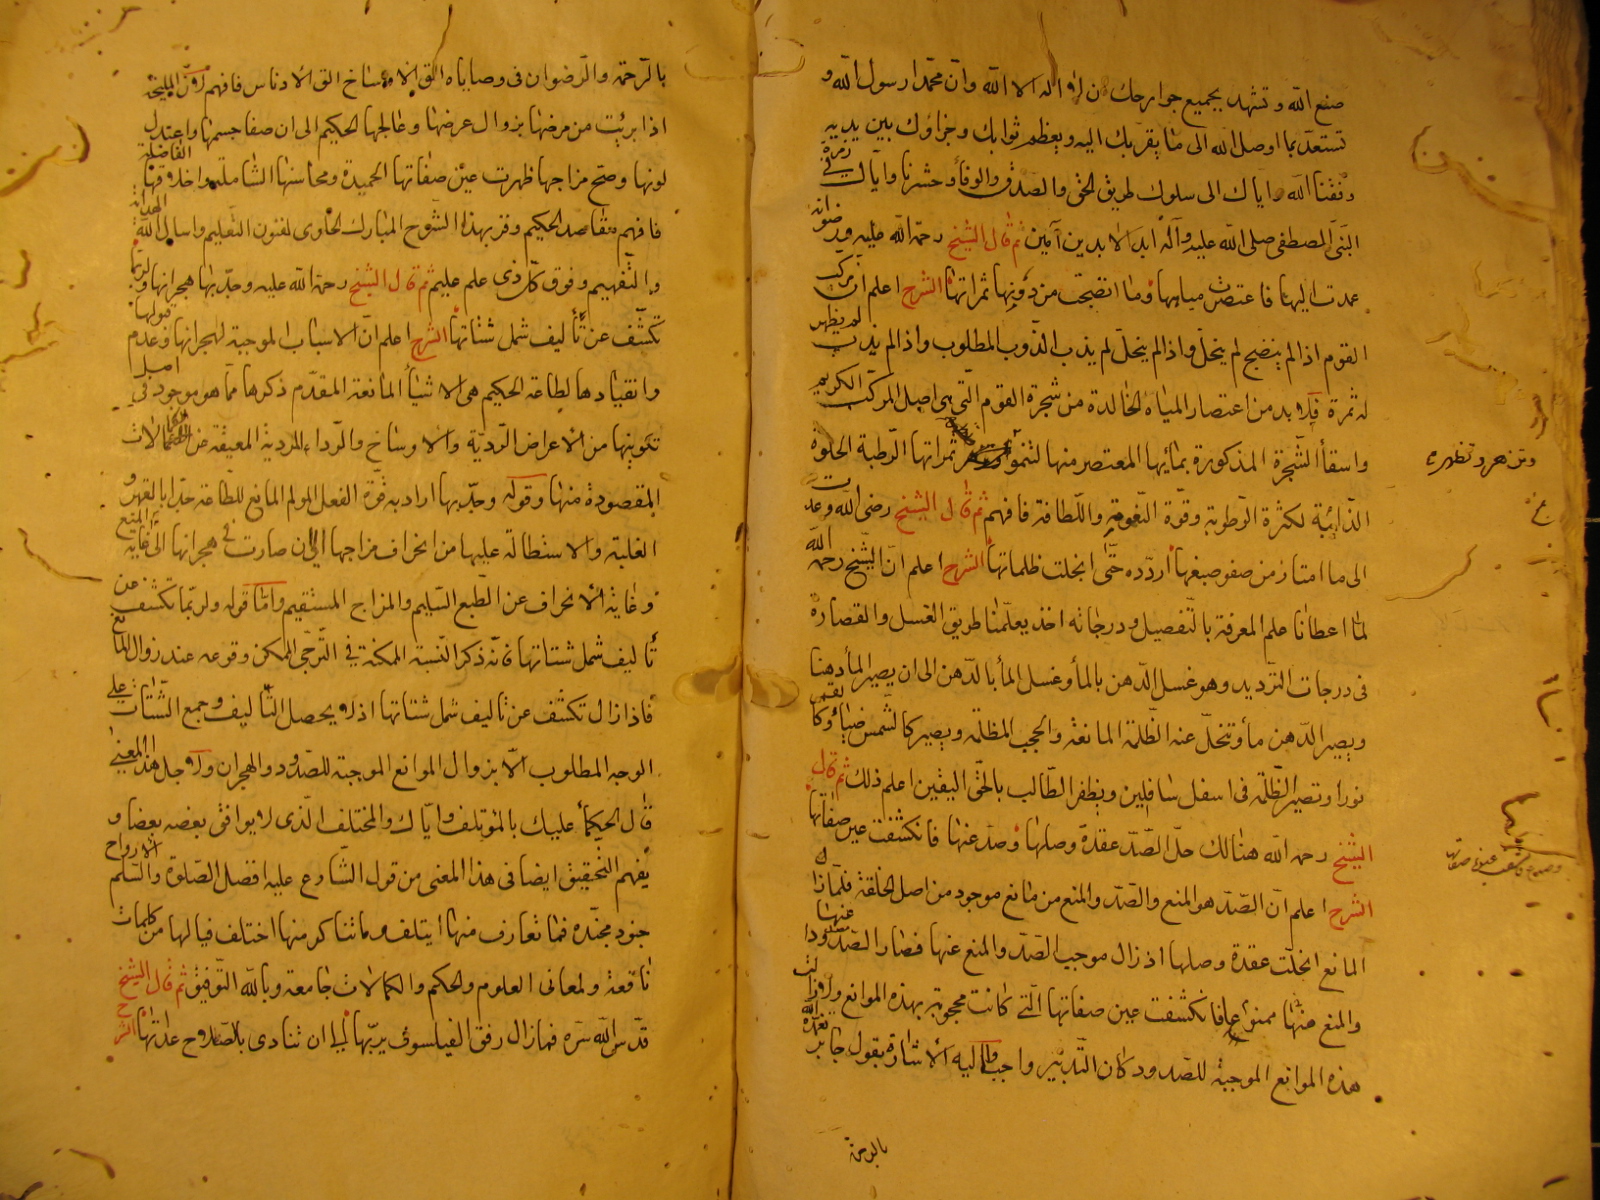 صنع الله وتشهد بجميع جوارحك ان لا اله الا الله وان محمدا رسول الله و
تستعد بما اوصل الله الى ما يقربك اليه ويعظم ثوابك وجزاؤك بين يديه
وفقنا الله واياك الى سلوك طريق الحق والصدق والوفاء وحشرنا واياك في زمرة
النبى المصطفى صلى الله عليه وآله ابد الابدين آمين ثم قال الشيخ رحمة الله عليه ورضوانه
عدت اليها فاعتصرت مياهها وما انضجت من دونها ثمراتها الشرح اعلم ان مركب
القوم اذا لم ينضج لم ينحل واذا لم ينحل لم يذب الذوب المطلوب واذا لم يذب لم يظهر
له ثمرة فلا بد من اعتصار المياه الخالدة من شجرة القوم التى هى اصل المركب الكريم
واسقاء الشجرة المذكورة بمائها المعتصر منها لتنموا ثمراتها الرطبة الحلوة
وتزهر وتظهر
الذائبة لكثرة الرطوبة وقوة النعومة واللطافة فافهم ثم قال الشيخ رضى الله وعدت
الى ما امتاز من صفو صبغها اردده حتى انجلت ظلماتها الشرح اعلم ان الشيخ رحمه الله
لما اعطانا علم المعرفة بالتفصيل ودرجاته اخذ يعلمنا طريق الغسل والقصارة
فى درجات الترديد وهو غسل الدهن بالماء وغسل الماء بالدهن الى ان يصير الماء دهنا
ويصير الدهن ماء وتنحل عنه الظلمة المانعة والحجب المظلمة ويصير كالشمس ضياء وكالقمر
نورا وتصير الظلمة فى اسفل سافلين ويظفر الطالب بالحق اليقين اعلم ذلك ثم قال
الشيخ رحمه الله هنالك حل الصد عقدة وصلها وصد عنها فانكشفت عين صفاتها
الشرح اعلم ان الصد هو المنع والصد والمنع من مانع موجود من اصل الخلقة فلما زال
المانع انحلت عقدة وصلها اذ زال موجب الصد والمنع عنها فصار الصد عنها مصدودا
والمنع منها ممنوعا فانكشفت عين صفاتها التى كانت محجوبة بهذه الموانع ولازالت
هذه الموانع الموجبة للصدود كان التدبير واجبا واليه الاشارة بقول جابر تغمده الله
بالرحمة
بالرحمة والرضوان فى وصاياه الق الاوساخ الق الادناس فافهم لان المليحة
اذا برئت من مرضها بزوال عرضها وعالجها الحكيم الى ان صفا جسمها واعتدل
لونها وصح مزاجها ظهرت عين صفاتها الحميدة ومحاسنها الشاملة واخلاقها الفاضلة
فافهم مقاصد الحكيم وفز بهذا الشرح المبارك الحاوى لفنون التعليم واسال الله الهداية
والتفهيم وفوق كل ذى علم عليم ثم قال الشيخ رحمة الله عليه وجد بها هجرانها ولربما
تكشف عن تأليف شمل شتاتها الشرح اعلم ان الاسباب الموجبة لهجرانها وعدم قبولها
وانقيادها لطاعة الحكيم هى الاشياء المانعة المقدم ذكرها مما هو موجود فى اصل
تكوينها من الاعراض الردية والاوساخ والرداء المردية المعيقة عن الكمالات
المقصودة منها وقوله وجد بها اراد به قوة الفعل المولم المانع للطاعة جدا بالقهر و
الغلبة والاستطالة عليها من انحراف مزاجها الى ان صارت فى هجرانها الى غاية المنع
وغاية الانحراف عن الطبع السليم والمزاج المستقيم واما قوله ولربما تكشف عن
تأليف شمل شتاتها فانه ذكر النسبة الممكنة فى الترجى الممكن وقوعه عند زوال المانع
فاذا زال تكشف عن تاليف شمل شتاتها اذ لا يحصل التاليف وجمع الشتات على
الوجه المطلوب الا بزوال الموانع الموجبة للصدود والهجران ولاجل هذا المعنى
قال الحكماء عليك بالمؤتلف واياك والمختلف الذى لا يوافق بعضه بعضا و
يفهم التحقيق ايضا فى هذا المعنى من قول الشارع عليه افضل الصلوة والسلم الارواح
جنود مجندة فما تعارف منها ايتلف وما تناكر منها اختلف فيا لها من كلمات
نافعة ولمعانى العلوم والحكم والكمالات جامعة وبالله التوفيق ثم قال الشيخ
قدس الله سره فما زال رفق الفيلسوف يربها الى ان تنادى بالصلاح عداتها الشرح